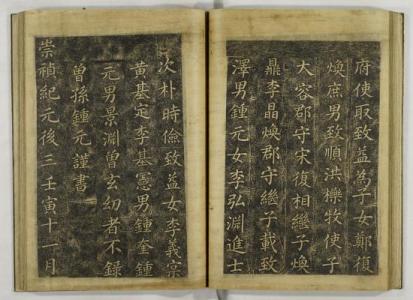 府使取致益為子女鄭復
煥庶男致順洪櫟牧使子
大容郡守宋復相繼子煥
鼎李晶煥郡守繼子載致
澤男鍾元女李弘淵進士
次朴時儉致益女李義宗
黃基定李基憲男鍾奎鍾
元男景淵曽玄幼者不錄
曽孫鍾元謹書
崇禎紀元後三壬寅十一月